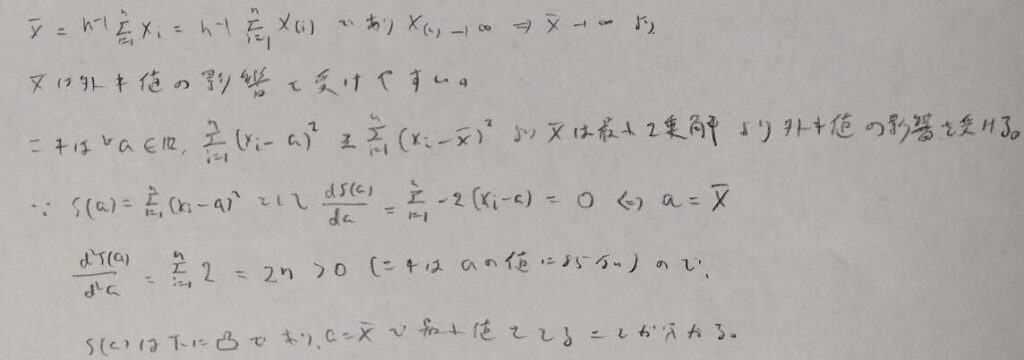 x̄ = n⁻¹ Σᵢ₌₁ⁿ xᵢ = n⁻¹ Σᵢ₌₁ⁿ x₍ᵢ₎ であり x₍ₙ₎→∞ ⇒ x̄→∞ より
x̄は外れ値の影響を受けやすい。
これは ∀a∈ℝ, Σᵢ₌₁ⁿ (xᵢ-a)² ≧ Σᵢ₌₁ⁿ (xᵢ-x̄)² より x̄は最小2乗解より外れ値の影響を受ける。
∵ S(a) = Σᵢ₌₁ⁿ (xᵢ-a)² として dS(a)/da = Σᵢ₌₁ⁿ -2(xᵢ-a) = 0 ⇔ a = x̄
d²S(a)/d²a = Σᵢ₌₁ⁿ 2 = 2n > 0 (これは aの値によらない) ので、
S(a)は下に凸であり、a=x̄で最小値をとることが分かる。